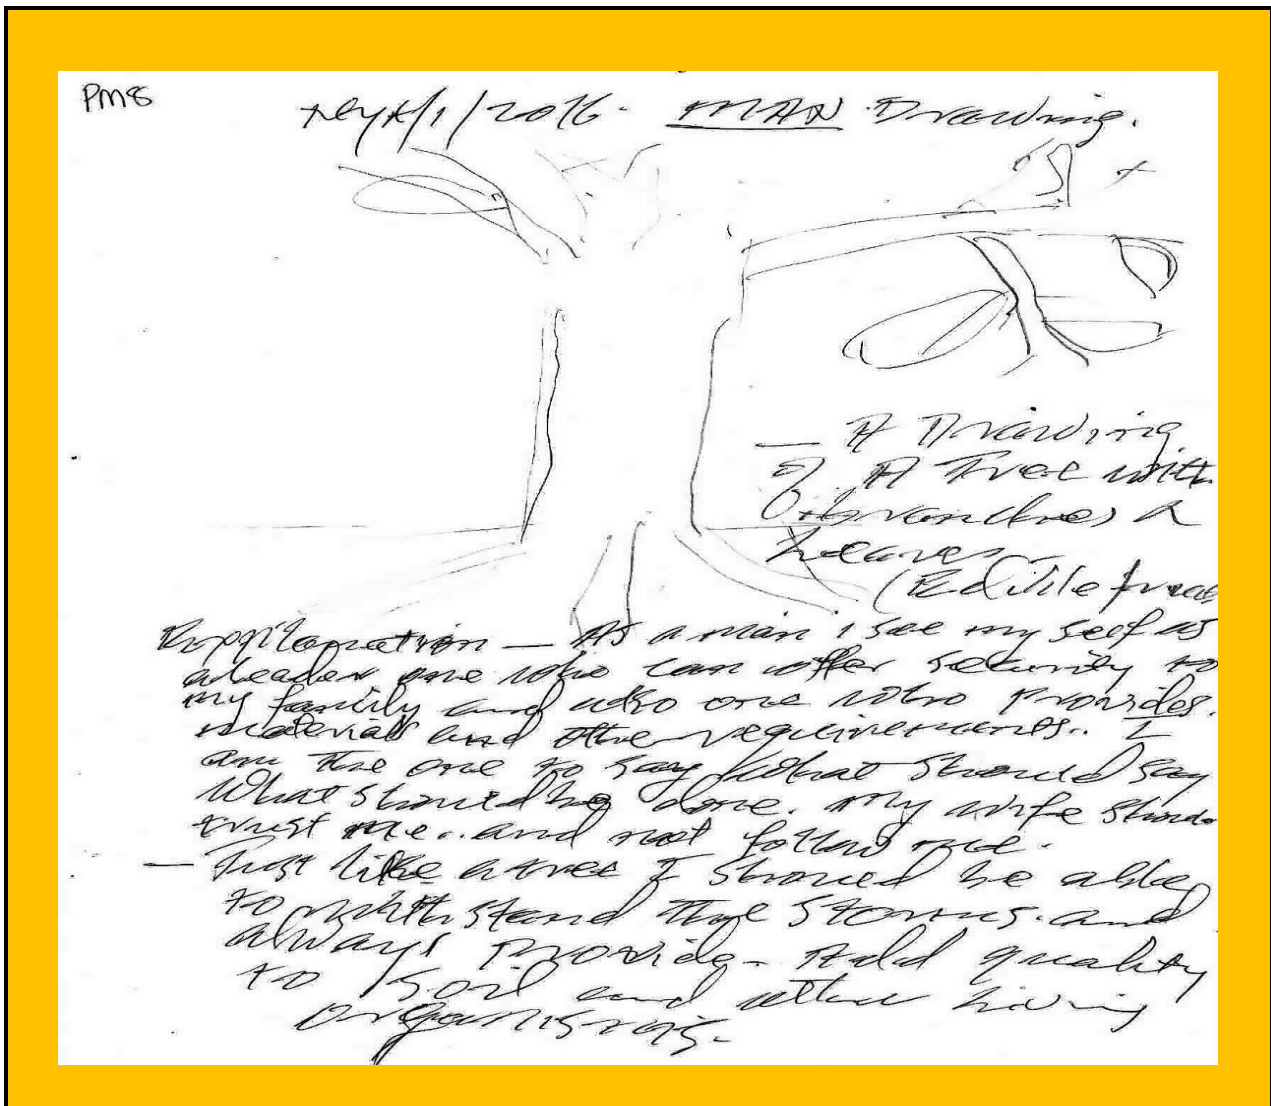 PM8
/1/2016. MAN Drawing.
— A Drawing
of A Tree with
branches &
Leaves
(Edible fruit
Explanation — As a man i see my self as
aleader one who can offer security to
my family and also one who provides.
materials and other requirements. I
am the one to say what should say
what should be done. my wife should
trust me.. and not follow me.
— Just like a tree I should be able
to withstand the storms. and
always provide - Add quality
to soil and other living
organisms.